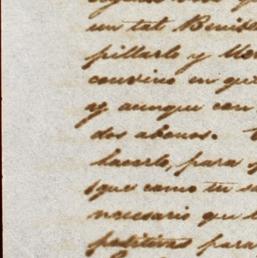 un tal Benit
pillarlo y Mon
convino en que
y aunque con
dos abonos.
hacerlo, para
que como tu su
necesario que
positivas para